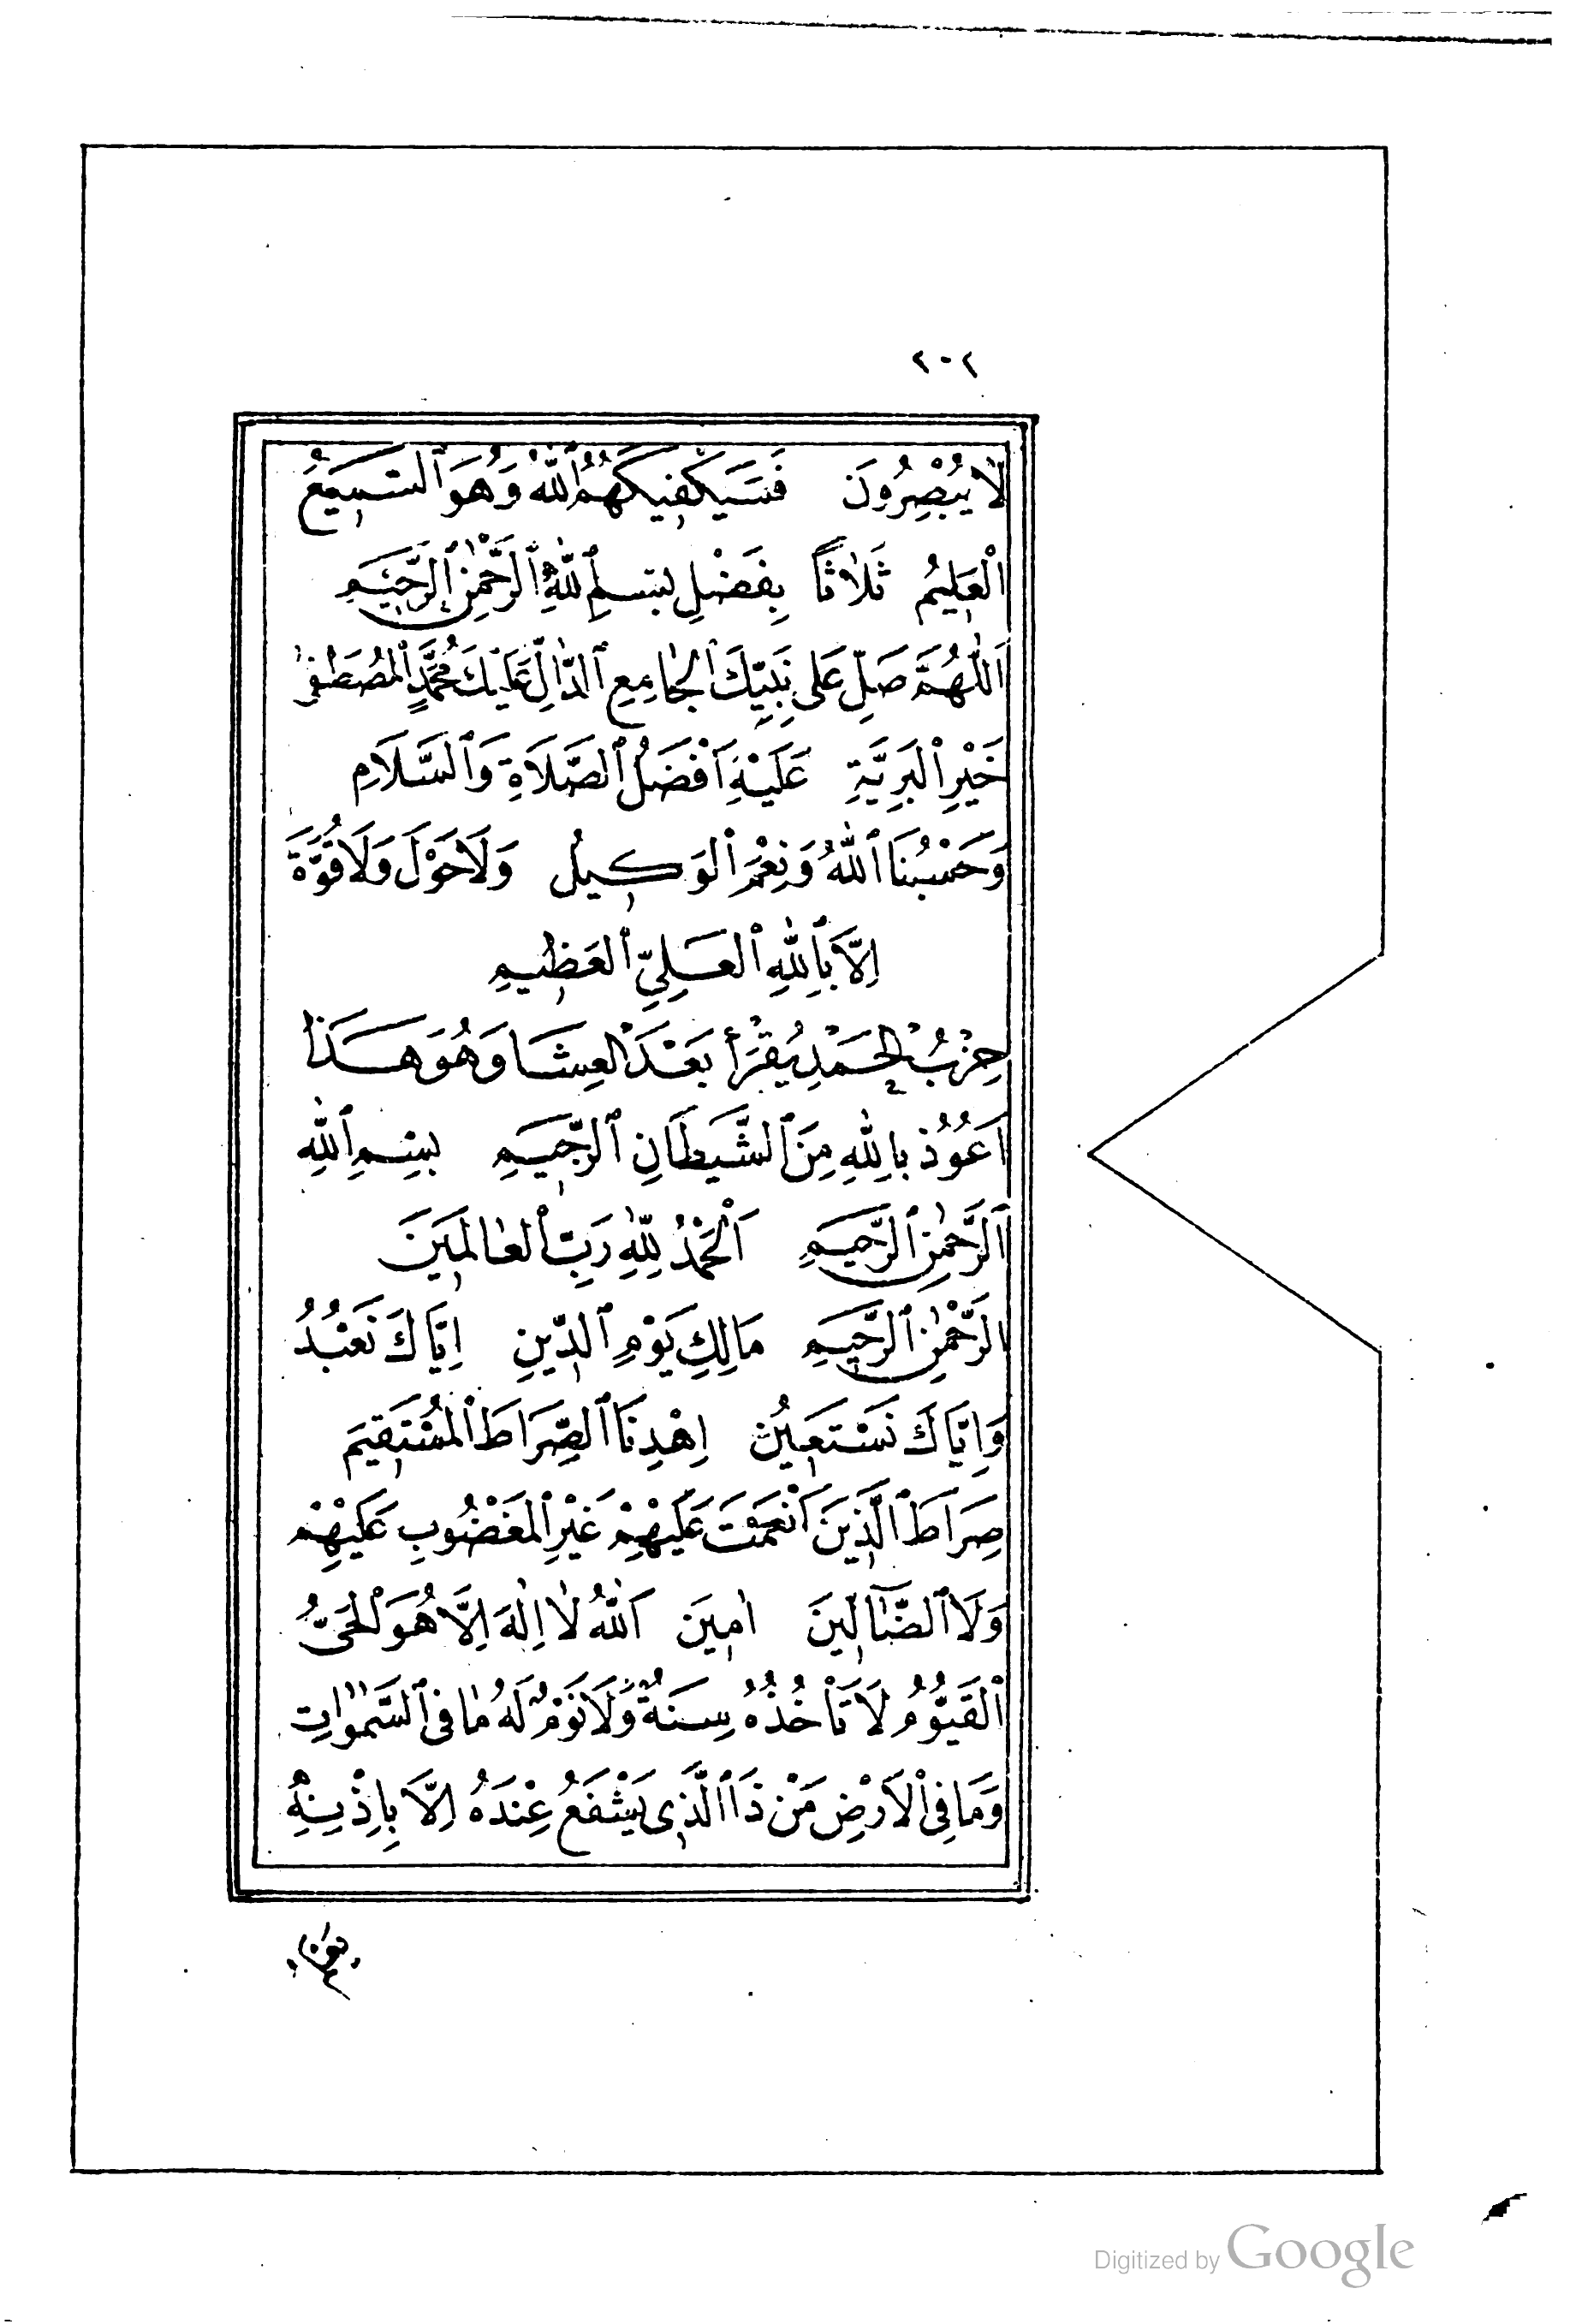 ٢٠٢
لَا يُبْصِرُونَ فَسَيَكْفِيكَهُمُ ٱللّٰهُ وَهُوَ ٱلسَّمِيعُ
ٱلْعَلِيمُ ثَلَاثًا بِفَضْلِ بِسْمِ ٱللّٰهِ ٱلرَّحْمٰنِ ٱلرَّحِيمِ
اَللّٰهُمَّ صَلِّ عَلٰى نَبِيِّكَ ٱلْجَامِعِ ٱلدَّالِّ عَلَيْكَ مُحَمَّدٍ ٱلْمُصْطَفٰى
خَيْرِ ٱلْبَرِيَّةِ عَلَيْهِ اَفْضَلُ ٱلصَّلَاةِ وَٱلسَّلَامِ
وَحَسْبُنَا ٱللّٰهُ وَنِعْمَ ٱلْوَكِيلُ وَلَا حَوْلَ وَلَا قُوَّةَ
اِلَّا بِٱللّٰهِ ٱلْعَلِيِّ ٱلْعَظِيمِ
حِزْبُ الْحَمْدِ يُقْرَأُ بَعْدَ الْعِشَا وَهُوَ هَذَا
اَعُوذُ بِاللّٰهِ مِنَ ٱلشَّيْطَانِ ٱلرَّجِيمِ بِسْمِ ٱللّٰهِ
ٱلرَّحْمٰنِ ٱلرَّحِيمِ اَلْحَمْدُ لِلّٰهِ رَبِّ ٱلْعَالَمِينَ
الرَّحْمٰنِ ٱلرَّحِيمِ مَالِكِ يَوْمِ ٱلدِّينِ اِيَّاكَ نَعْبُدُ
وَاِيَّاكَ نَسْتَعِينُ اِهْدِنَا ٱلصِّرَاطَ ٱلْمُسْتَقِيمَ
صِرَاطَ ٱلَّذِينَ اَنْعَمْتَ عَلَيْهِمْ غَيْرِ ٱلْمَغْضُوبِ عَلَيْهِمْ
وَلَا ٱلضَّآلِّينَ اٰمِينَ اَللّٰهُ لَا اِلٰهَ اِلَّا هُوَ الْحَيُّ
ٱلْقَيُّومُ لَا تَأْخُذُهُ سِنَةٌ وَلَا نَوْمٌ لَهُ مَا فِي ٱلسَّمٰوَاتِ
وَمَا فِي ٱلْاَرْضِ مَنْ ذَا ٱلَّذِي يَشْفَعُ عِنْدَهُ اِلَّا بِاِذْنِهِ
Digitized by Google